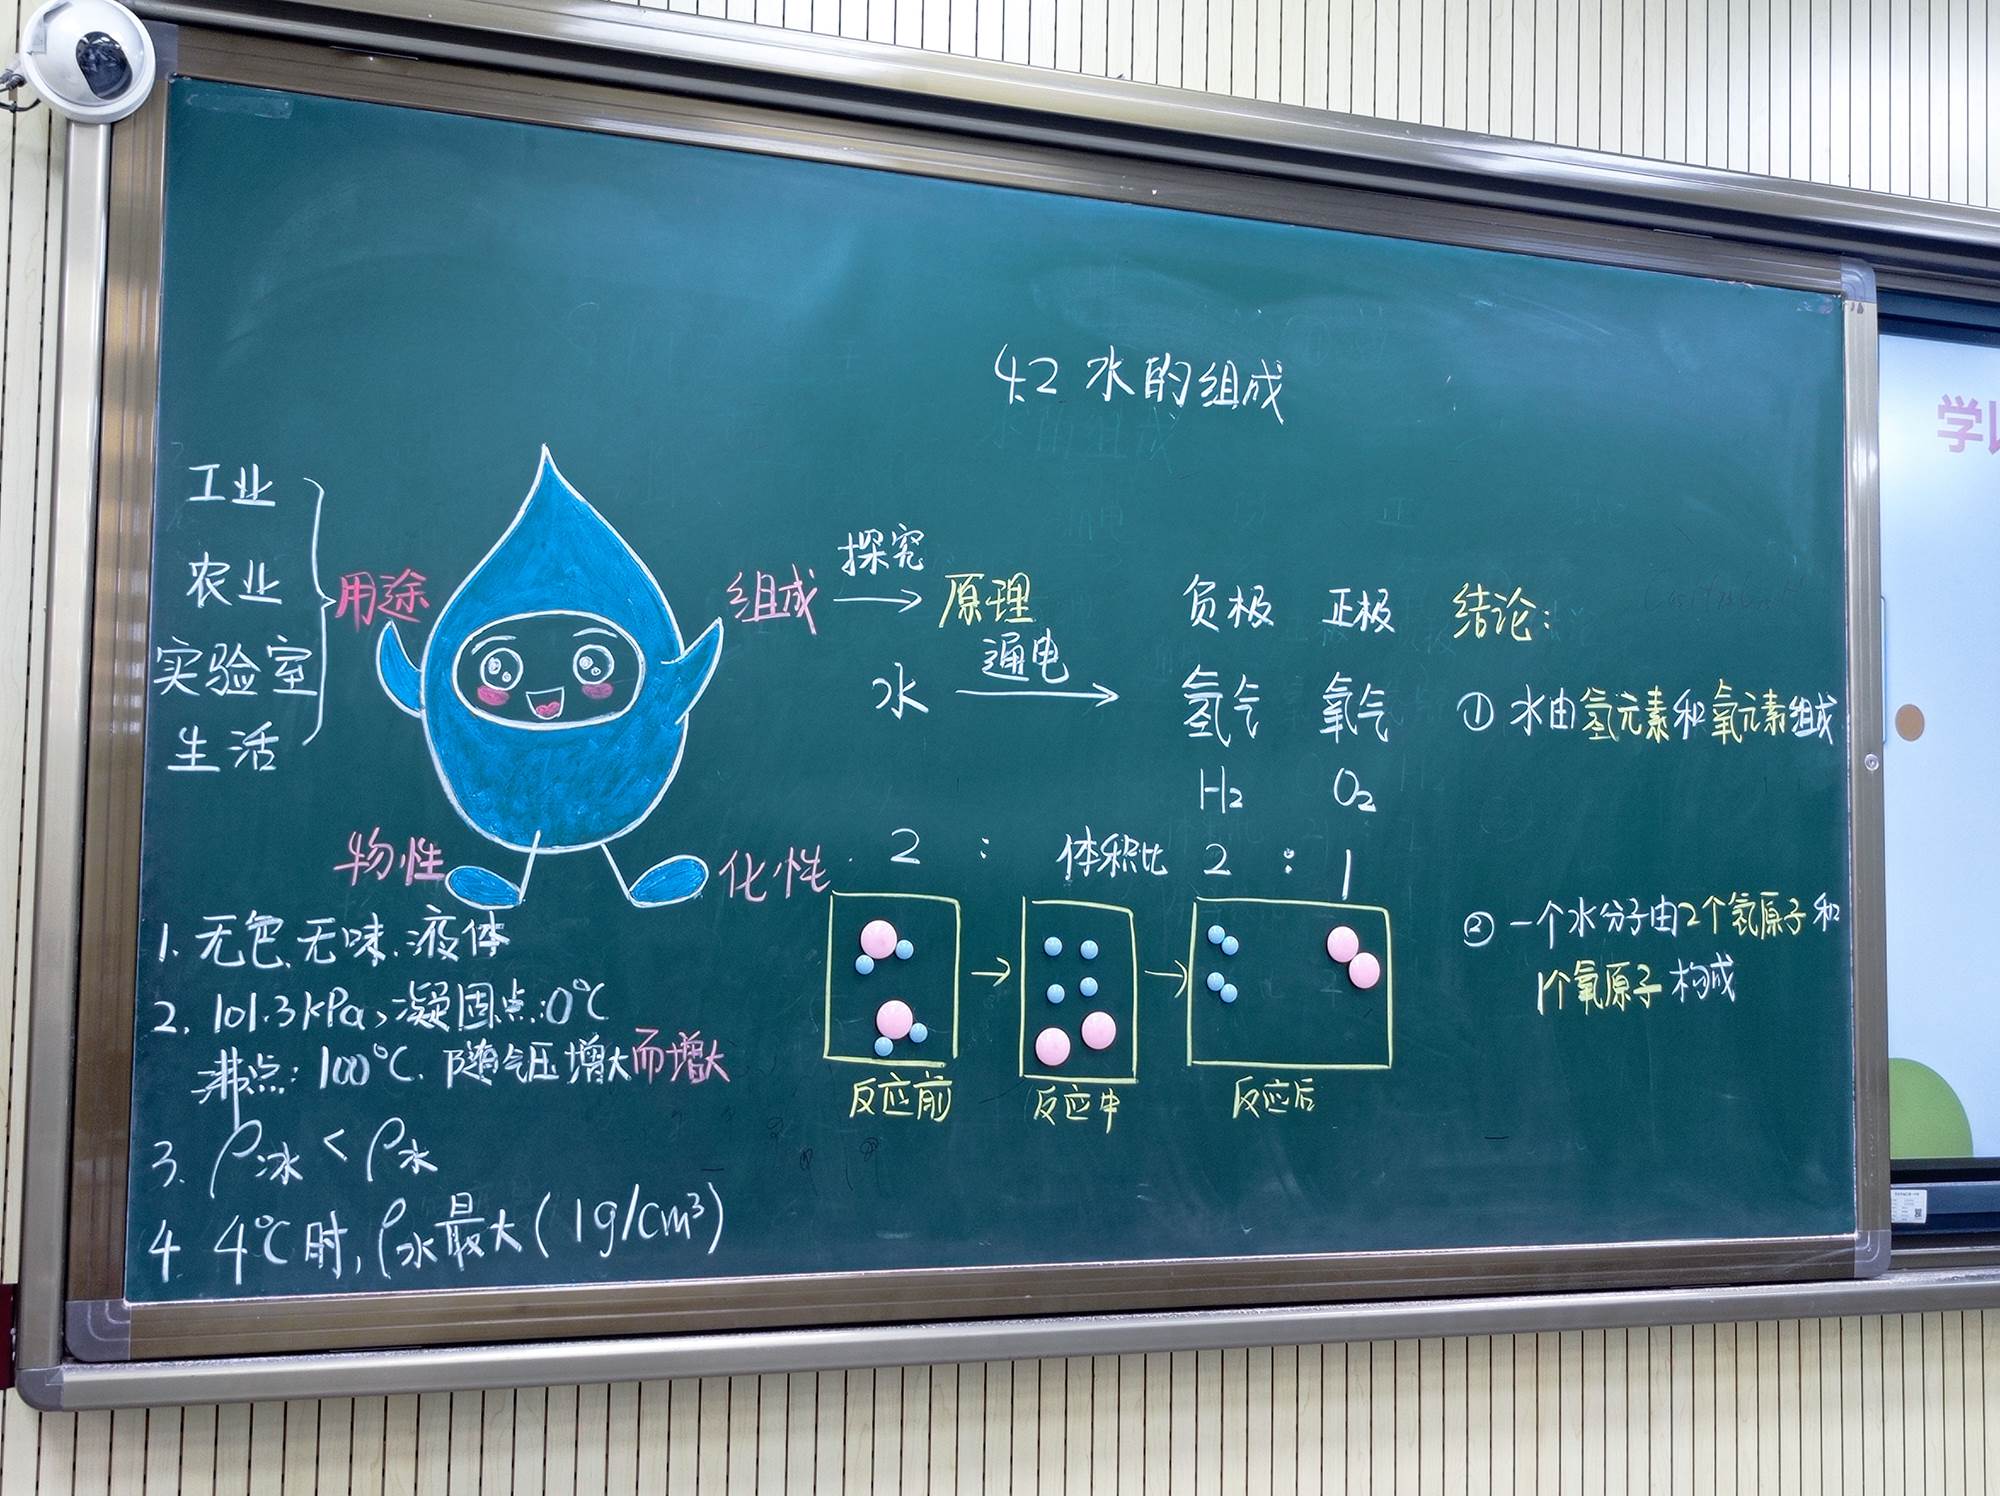 4.2 水的组成
工业
农业
实验室
生活
用途
组成
探究
原理
水
通电
负极 正极
氢气 氧气
H₂ O₂
2 : 体积比 2 : 1
结论:
① 水由氢元素和氧元素组成
② 一个水分子由2个氢原子和
1个氧原子构成
物性
化性
1. 无色、无味、液体
2. 101.3kPa, 凝固点:0℃
沸点: 100℃. 随气压增大而增大
3. ρ冰 < ρ水
4. 4℃时, ρ水最大(1g/cm³)
反应前
反应中
反应后
学